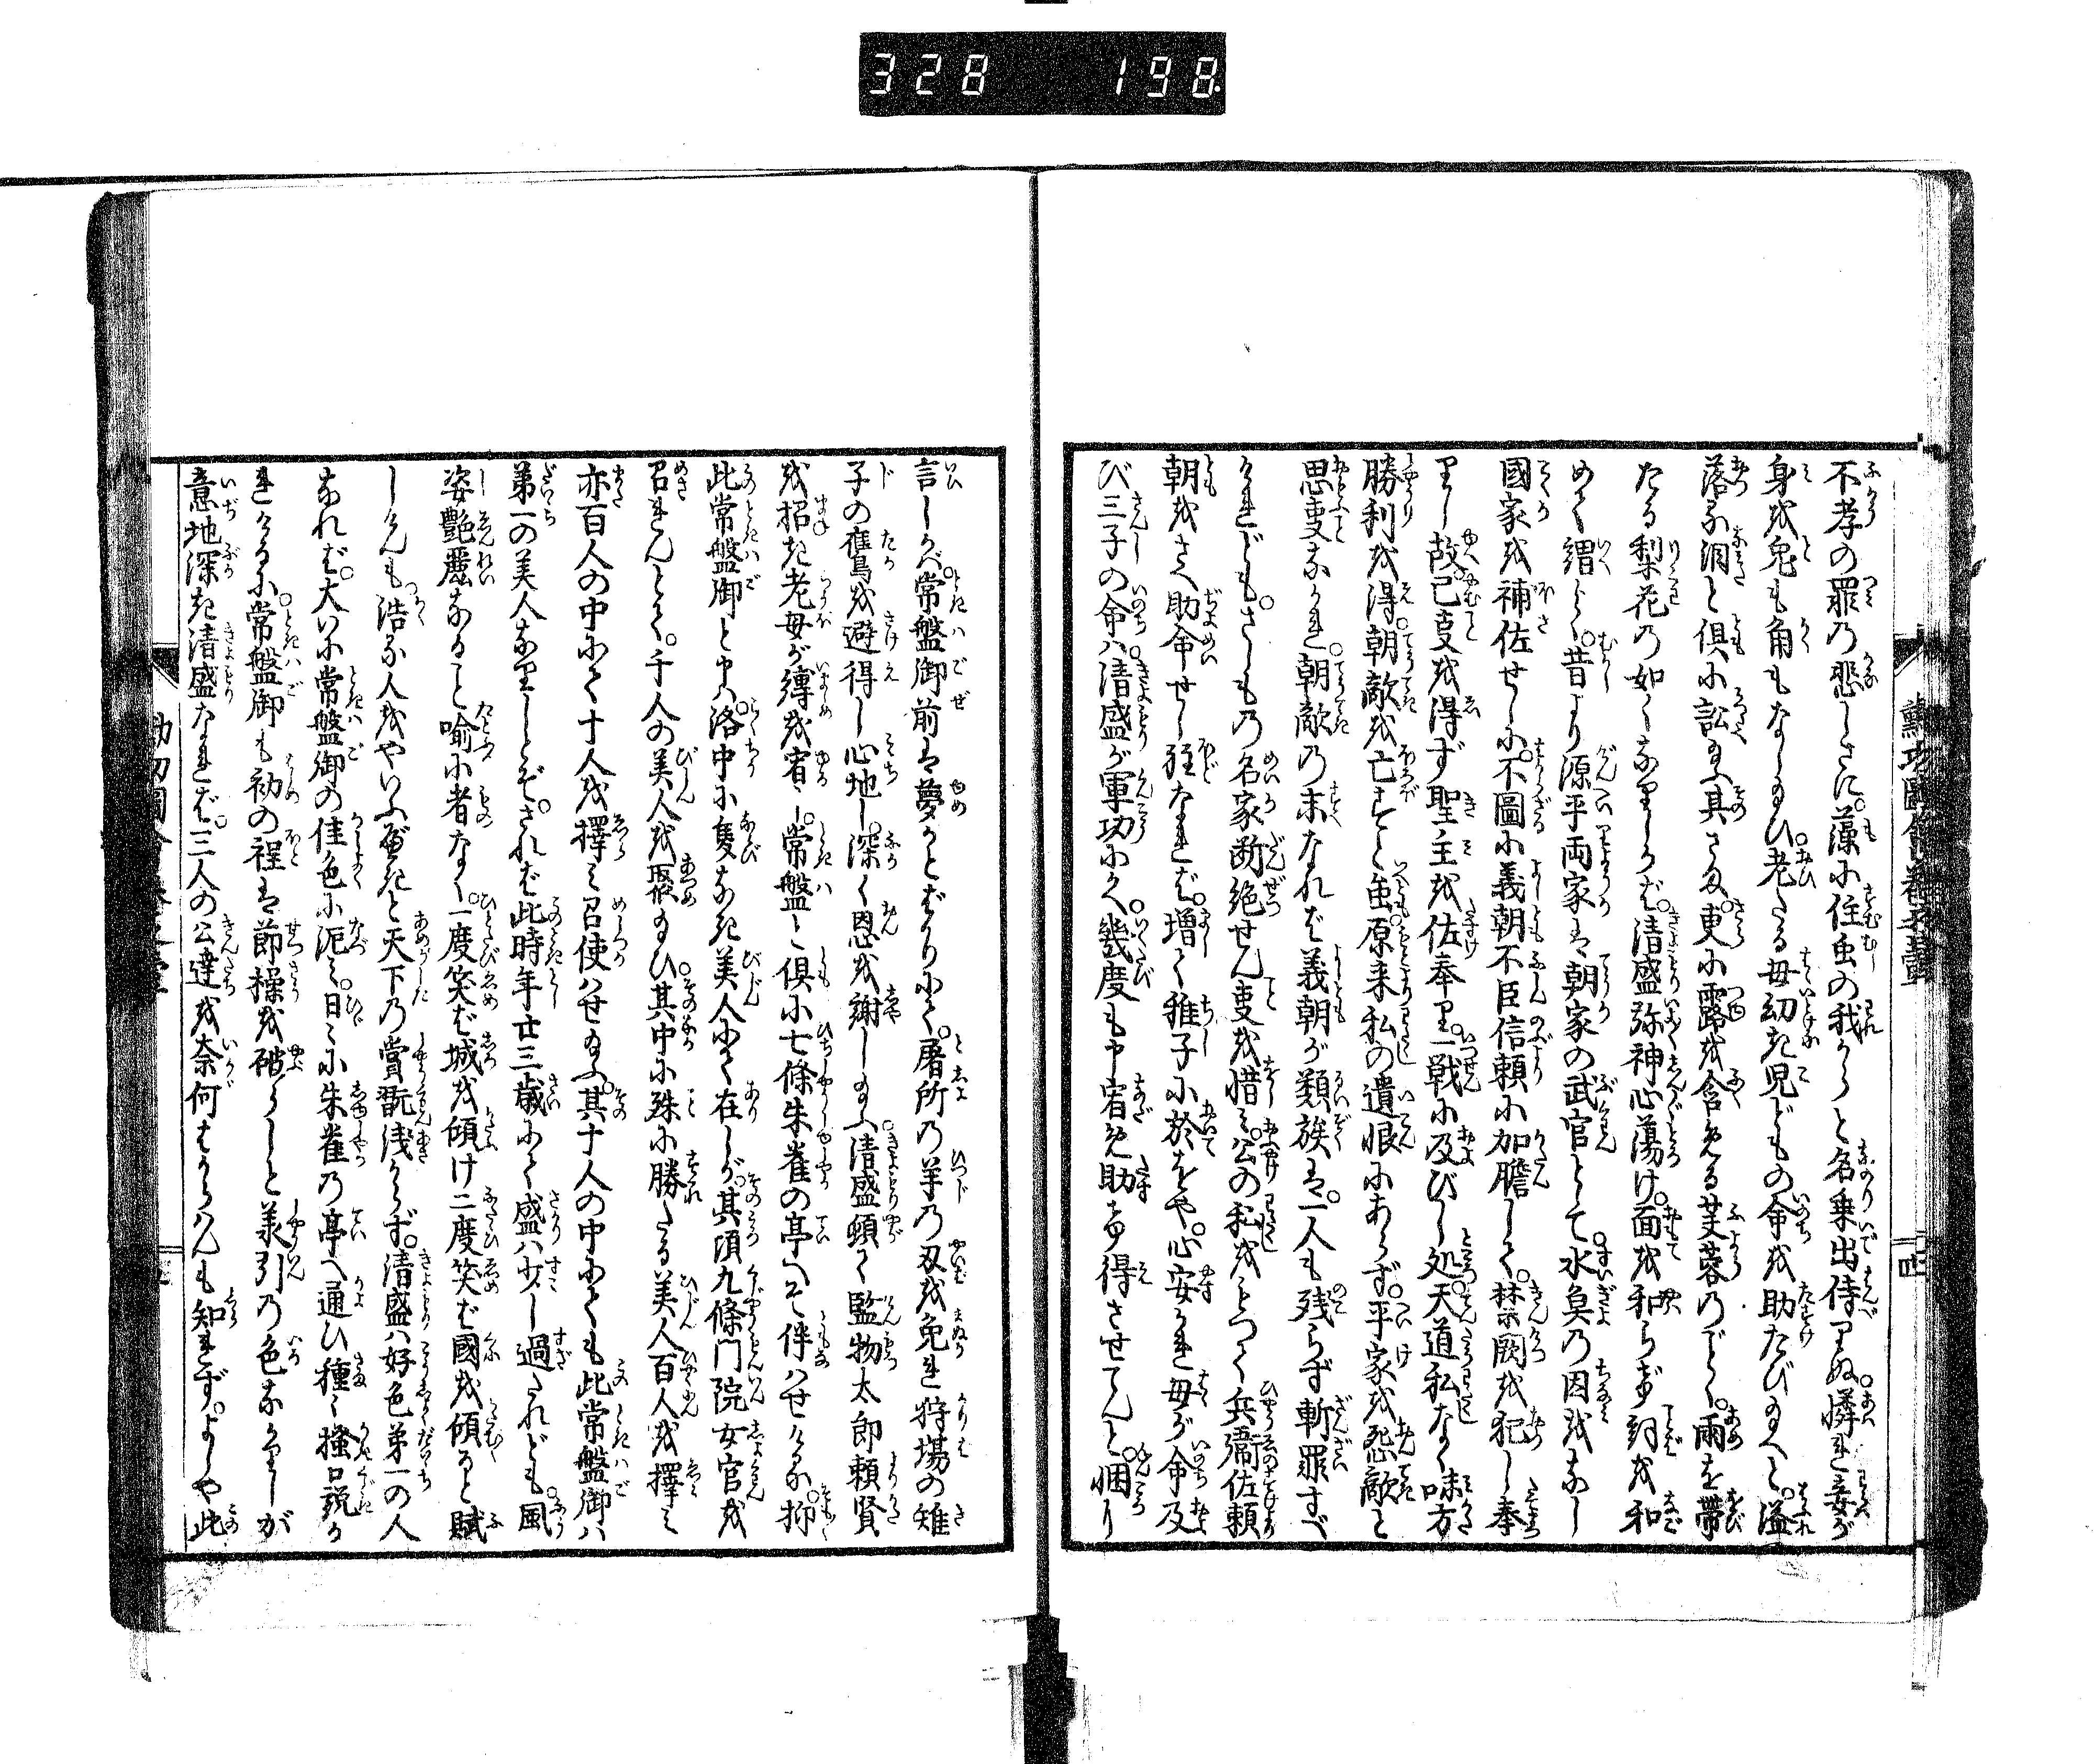 328 198
不孝の罪乃悲しさに。藻小住虫の我からと名乗出侍りぬ。憐れ妾が
身を兎も角もなし給ひ。老たる母幼き児どもの命を助たび給へと。溢
落る涙と倶に訟ふ其さま。更に露を含める芙蓉のごとく。雨を帯
たる梨花の如くなりしかば。清盛弥神心蕩け。面を和らげ詞を和
めて謂らく。昔より源平両家は朝家の武官として。水魚の因をなし
國家を補佐せしに。不圖に義朝不臣信頼に加膽して。禁闕を犯し奉
りし故。已事を得ず聖主を佐奉り。一戦に及びし処。天道私なく味方
勝利を得。朝敵を亡すと雖。原来私の遺恨にあらず。平家を怨敵と
思事なかれ。朝敵の末なれば義朝が類族は。一人も残らず斬罪すべ
けれども。さしもの名家断絶せん事を惜み。公の私をもつて兵衛佐頼
朝をさへ助命せし程なれば。増て稚子に於をや。心安かれ母が命及
び三子の命ハ。清盛が軍功にかへ。幾度も申宥め助け得させてんと。悃り
言しかバ。常盤御前は夢かとばかりにて。屠所の羊の刃を免れ狩場の雉
子の鷹を避得し心地し。深く恩を謝し給ふ。清盛頓て監物太郎頼賢
を招き老母が縛を宥し。常盤と倶に七條朱雀の亭へぞ伴ハせける。抑
此常盤御と申ハ。洛中に隻なき美人にて在しが。其頃九條門院女官を
召れんとて。千人の美人を聚給ひ。其中に殊に勝たる美人百人を擇み
亦百人の中にて十人を擇み召使ハせ給ふ。其十人の中にても此常盤御ハ
第一の美人なりしとぞ。されば此時年廿三歳にて盛ハ少し過たれども。風
姿艶麗なること喩に者なく。一度笑ば城を傾け二度笑ば國を傾ると賦
しけんも。浩る人をやいふべきと天下の賞翫浅からず。清盛ハ好色第一の人
なれば。大いに常盤御の佳色に泥み。日々に朱雀の亭へ通ひ種々掻口説か
れけるに。常盤御も初の程は節操を破らじと義引の色なかりしが
意地深き清盛なれば。三人の公達を奈何はからハんも知れず。よしや此